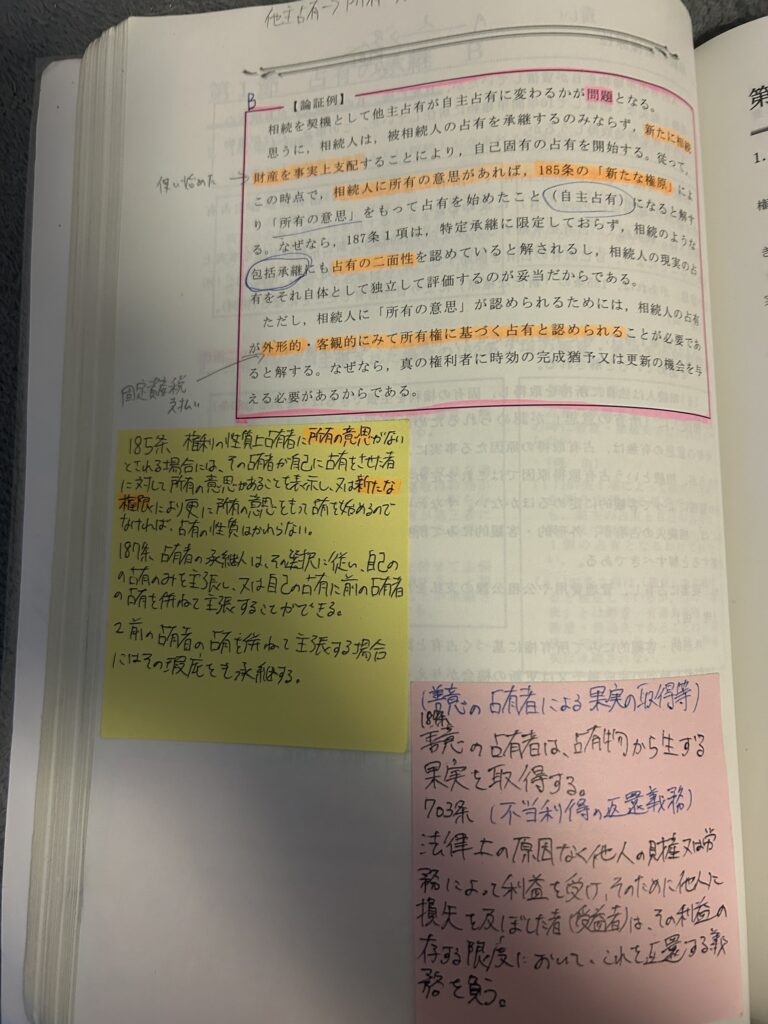 他主占有→
B
【論証例】
相続を契機として他主占有が自主占有に変わるかが問題となる。
思うに，相続人は，被相続人の占有を承継するのみならず，新たに相続
財産を事実上支配することにより，自己固有の占有を開始する。従って，
この時点で，相続人に所有の意思があれば，185条の「新たな権原」によ
り「所有の意思」をもって占有を始めたこと（自主占有）になると解す
る。なぜなら，187条1項は，特定承継に限定しておらず，相続のような
包括承継にも占有の二面性を認めていると解されるし，相続人の現実の占
有をそれ自体として独立して評価するのが妥当だからである。
ただし，相続人に「所有の意思」が認められるためには，相続人の占有
が外形的・客観的にみて所有権に基づく占有と認められることが必要であ
ると解する。なぜなら，真の権利者に時効の完成猶予又は更新の機会を与
える必要があるからである。
使い始めた
固定資産税
支払い
185条 権利の性質上占有者に所有の意思がない
とされる場合には、その占有者が自己に占有をさせた者
に対して所有の意思があることを表示し、又は新たな
権限により更に所有の意思をもって占有を始めるので
なければ、占有の性質はかわらない。
187条 占有者の承継人は、その選択に従い、自己の
の占有のみを主張し、又は自己の占有に前の占有者
の占有を併ねて主張することができる。
2 前の占有者の占有を併ねて主張する場合
にはその瑕疵をも承継する。
(善意の占有者による果実の取得等)
189条
善意の占有者は、占有物から生ずる
果実を取得する。
703条 (不当利得の返還義務)
法律上の原因なく他人の財産又は労
務によって利益を受け、そのために他人に
損失を及ぼした者(受益者)は、その利益の
存する限度において、これを返還する義
務を負う。
第
1.